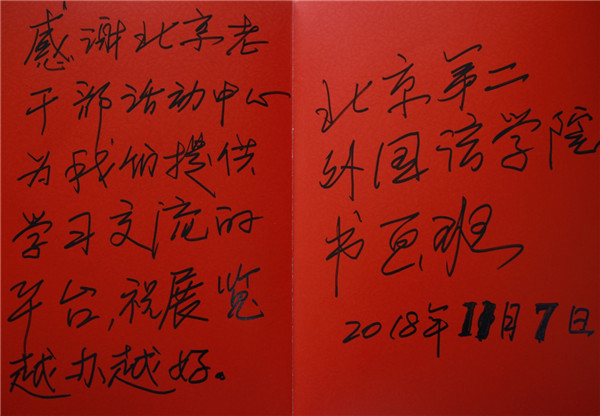 感谢北京老
干部活动中心
为我们提供
学习交流的
平台,祝展览
越办越好。
北京第二
外国语学院
书画班
2018年11月7日